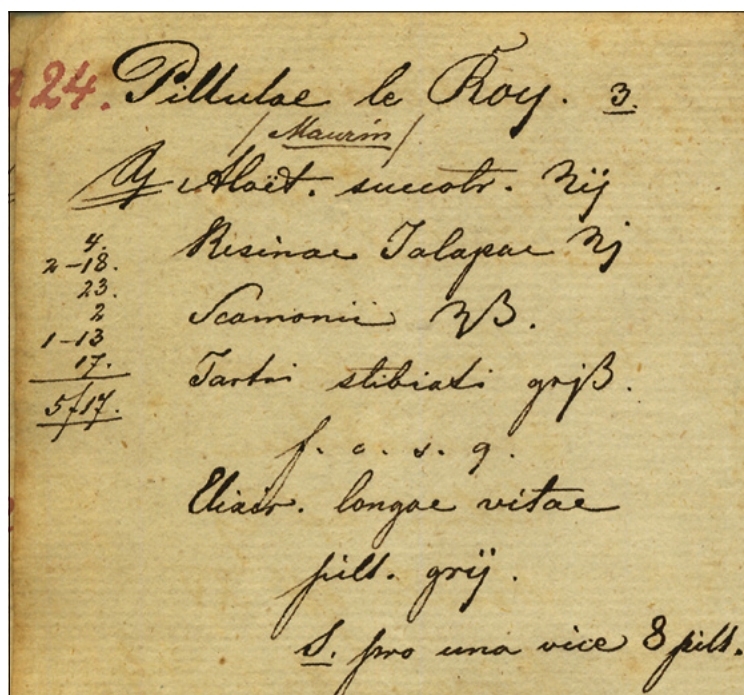 24. Pillulae le Roy. 3.
/Maurin/
℞ Aloët. succotr. ʒij
Resinae Jalapae ʒj
Scamonii ʒß.
Tartri stibiati grjß.
f. c. s. q.
Elixir. longae vitae
pill. grij.
S. pro una vice 8 pill.
4.
2-18.
23.
2
1-13
17.
5f17.